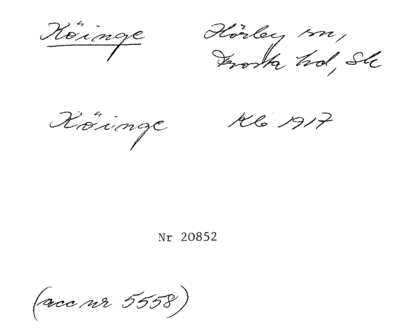 Köinge Hörby sn,
Frosta hd, Sk
Köinge Kb 1917
Nr 20852
(acc nr 5558)